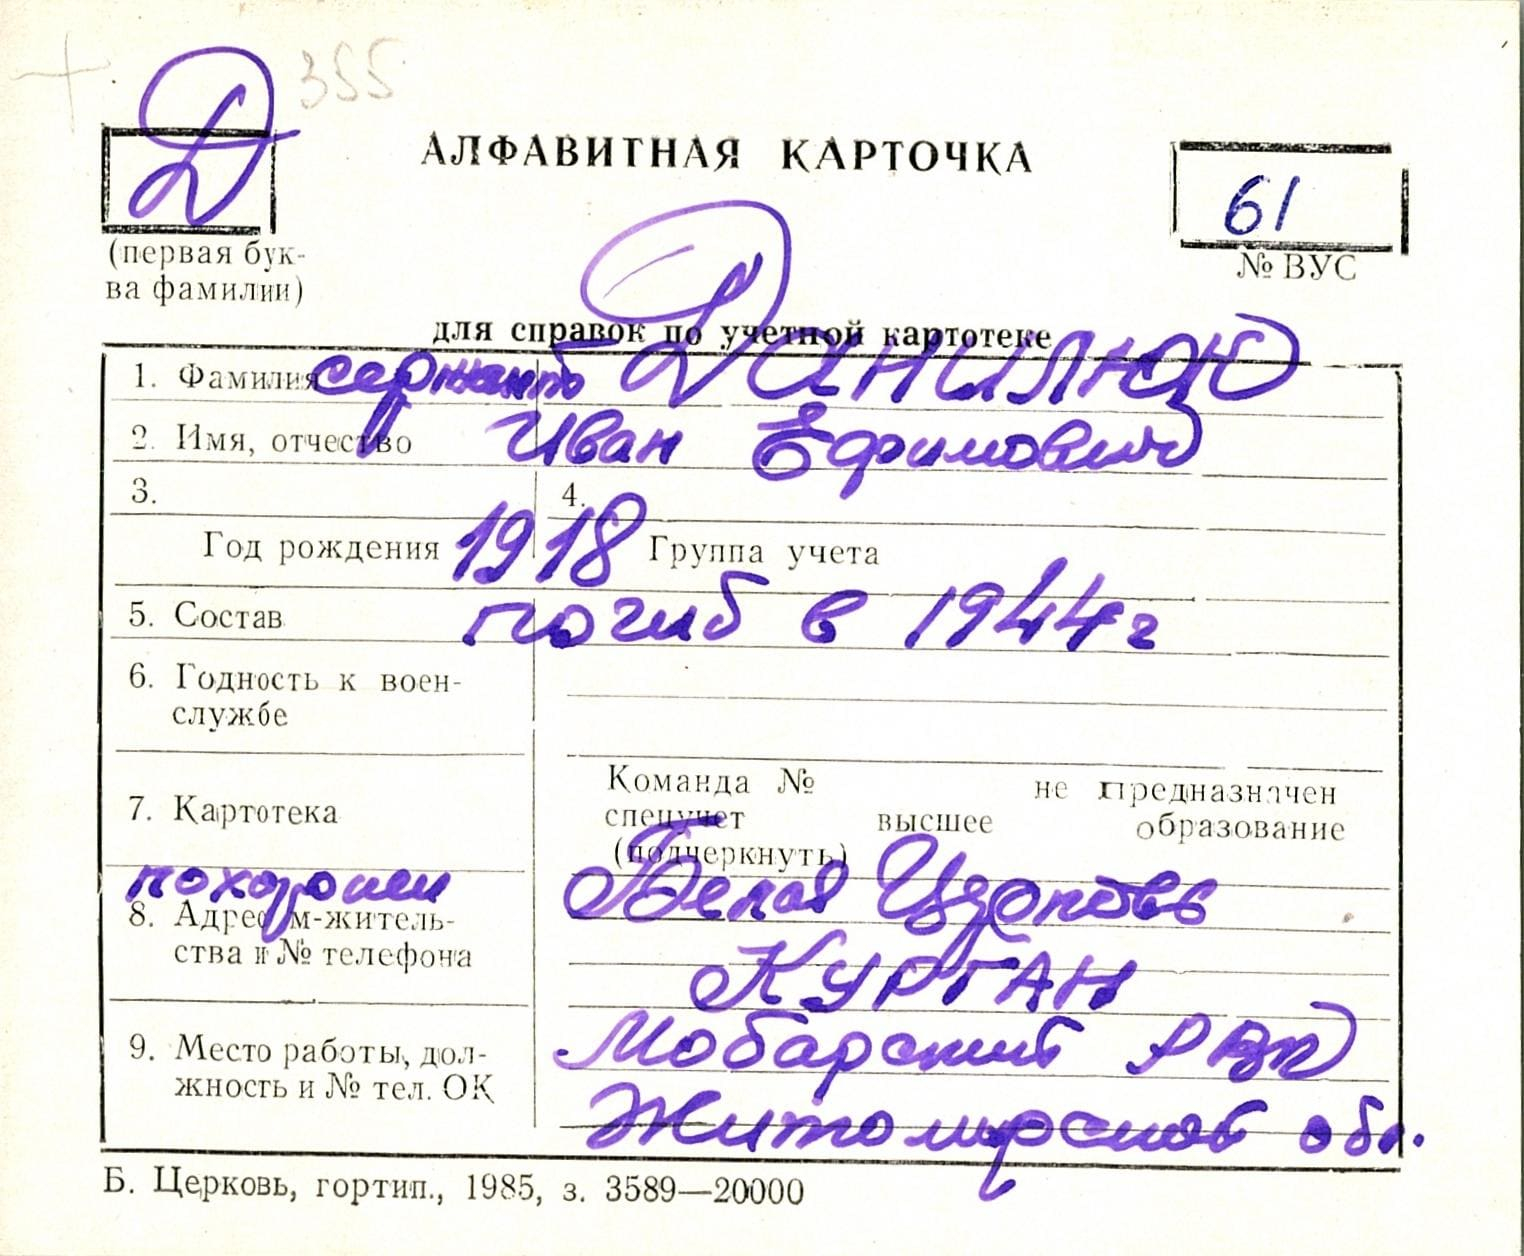 Д 355
АЛФАВИТНАЯ КАРТОЧКА
61
(первая бук-
ва фамилии)
№ ВУС
для справок по учетной картотеке
1. Фамилия сержант Данилюк
2. Имя, отчество Иван Ефимович
3. 4.
Год рождения 1918 Группа учета
5. Состав погиб в 1944 г
6. Годность к воен-
службе
7. Картотека
Команда № не предназначен
спецучет высшее образование
(подчеркнуть)
похоронен Белая Церковь
8. Адрес м-житель-
ства и № телефона
Курган
9. Место работы, дол-
жность и № тел. ОК
Мобарский РВК
Житомирской обл.
Б. Церковь, гортип., 1985, з. 3589—20000